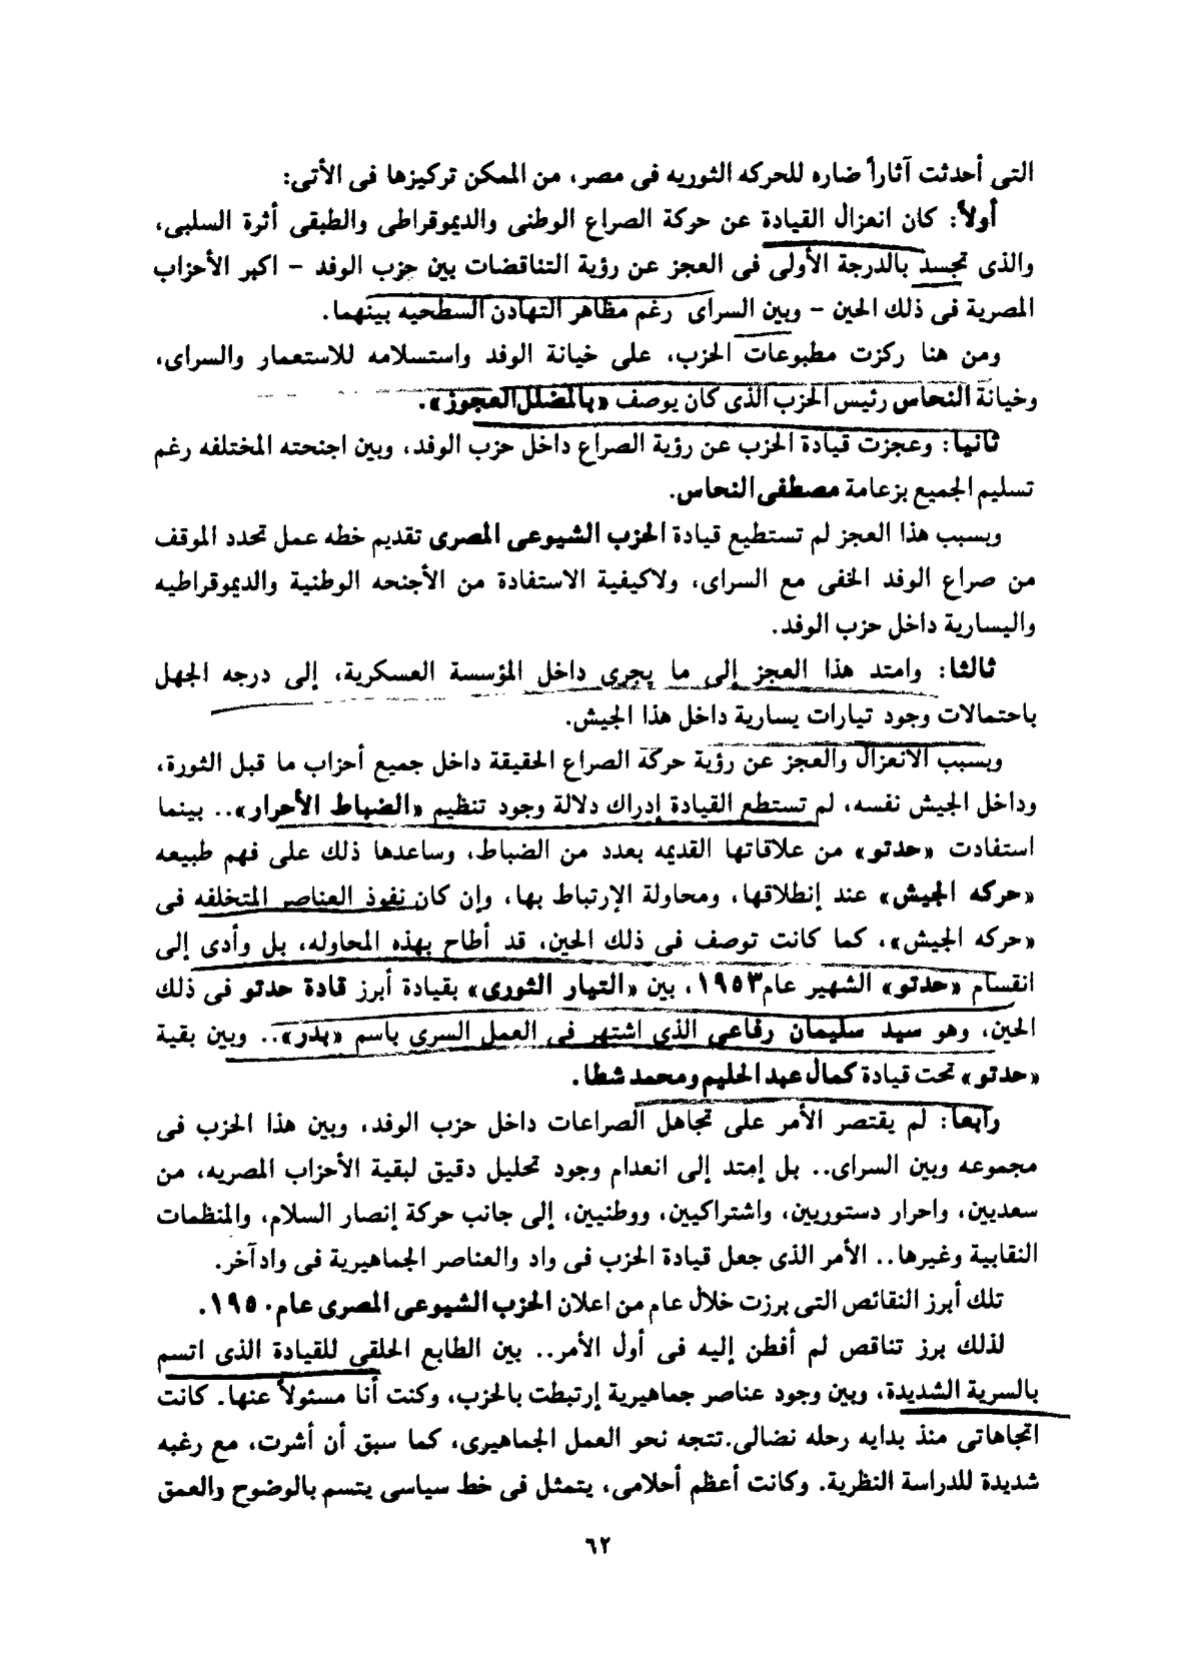 التى أحدثت آثاراً ضاره للحركه الثوريه فى مصر، من الممكن تركيزها فى الأتى:
أولاً: كان انعزال القيادة عن حركة الصراع الوطنى والديموقراطى والطبقى أثرة السلبى،
والذى تجسد بالدرجة الأولى فى العجز عن رؤية التناقضات بين حزب الوفد - اكبر الأحزاب
المصرية فى ذلك الحين - وبين السراى رغم مظاهر التهادن السطحيه بينهما.
ومن هنا ركزت مطبوعات الحزب، على خيانة الوفد واستسلامه للاستعمار والسراى،
وخيانة النحاس رئيس الحزب الذى كان يوصف «بالمضلل العجوز».
ثانيا: وعجزت قيادة الحزب عن رؤية الصراع داخل حزب الوفد، وبين اجنحته المختلفه رغم
تسليم الجميع بزعامة مصطفى النحاس.
وبسبب هذا العجز لم تستطيع قيادة الحزب الشيوعى المصرى تقديم خطه عمل تحدد الموقف
من صراع الوفد الخفى مع السراى، ولاكيفية الاستفادة من الأجنحه الوطنية والديموقراطيه
واليسارية داخل حزب الوفد.
ثالثا: وامتد هذا العجز إلى ما يجرى داخل المؤسسة العسكرية، إلى درجه الجهل
باحتمالات وجود تيارات يسارية داخل هذا الجيش.
وبسبب الانعزال والعجز عن رؤية حركة الصراع الحقيقة داخل جميع أحزاب ما قبل الثورة،
وداخل الجيش نفسه، لم تستطع القيادة إدراك دلالة وجود تنظيم «الضباط الأحرار».. بينما
استفادت «حدتو» من علاقاتها القديمه بعدد من الضباط، وساعدها ذلك على فهم طبيعه
«حركه الجيش» عند إنطلاقها، ومحاولة الإرتباط بها، وإن كان نفوذ العناصر المتخلفه فى
«حركه الجيش»، كما كانت توصف فى ذلك الحين، قد أطاح بهذه المحاوله، بل وأدى إلى
انقسام «حدتو» الشهير عام١٩٥٣، بين «التيار الثورى» بقيادة أبرز قادة حدتو فى ذلك
الحين، وهو سيد سليمان رفاعى الذى اشتهر فى العمل السرى باسم «بدر».. وبين بقية
«حدتو» تحت قيادة كمال عبد الحليم ومحمد شطا.
رابعا: لم يقتصر الأمر على تجاهل الصراعات داخل حزب الوفد، وبين هذا الحزب فى
مجموعه وبين السراى.. بل إمتد إلى انعدام وجود تحليل دقيق لبقية الأحزاب المصريه، من
سعديين، واحرار دستوريين، واشتراكيين، ووطنيين، إلى جانب حركة إنصار السلام، والمنظمات
النقابية وغيرها.. الأمر الذى جعل قيادة الحزب فى واد والعناصر الجماهيرية فى واد آخر.
تلك أبرز النقائص التى برزت خلال عام من اعلان الحزب الشيوعى المصرى عام ١٩٥٠.
لذلك برز تناقص لم أفطن إليه فى أول الأمر.. بين الطابع الحلقى للقيادة الذى اتسم
بالسرية الشديدة، وبين وجود عناصر جماهيرية إرتبطت بالحزب، وكنت أنا مسئولاً عنها. كانت
اتجاهاتى منذ بدايه رحله نضالى.تتجه نحو العمل الجماهيرى، كما سبق أن أشرت، مع رغبه
شديدة للدراسة النظرية. وكانت أعظم أحلامى، يتمثل فى خط سياسى يتسم بالوضوح والعمق
٦٢